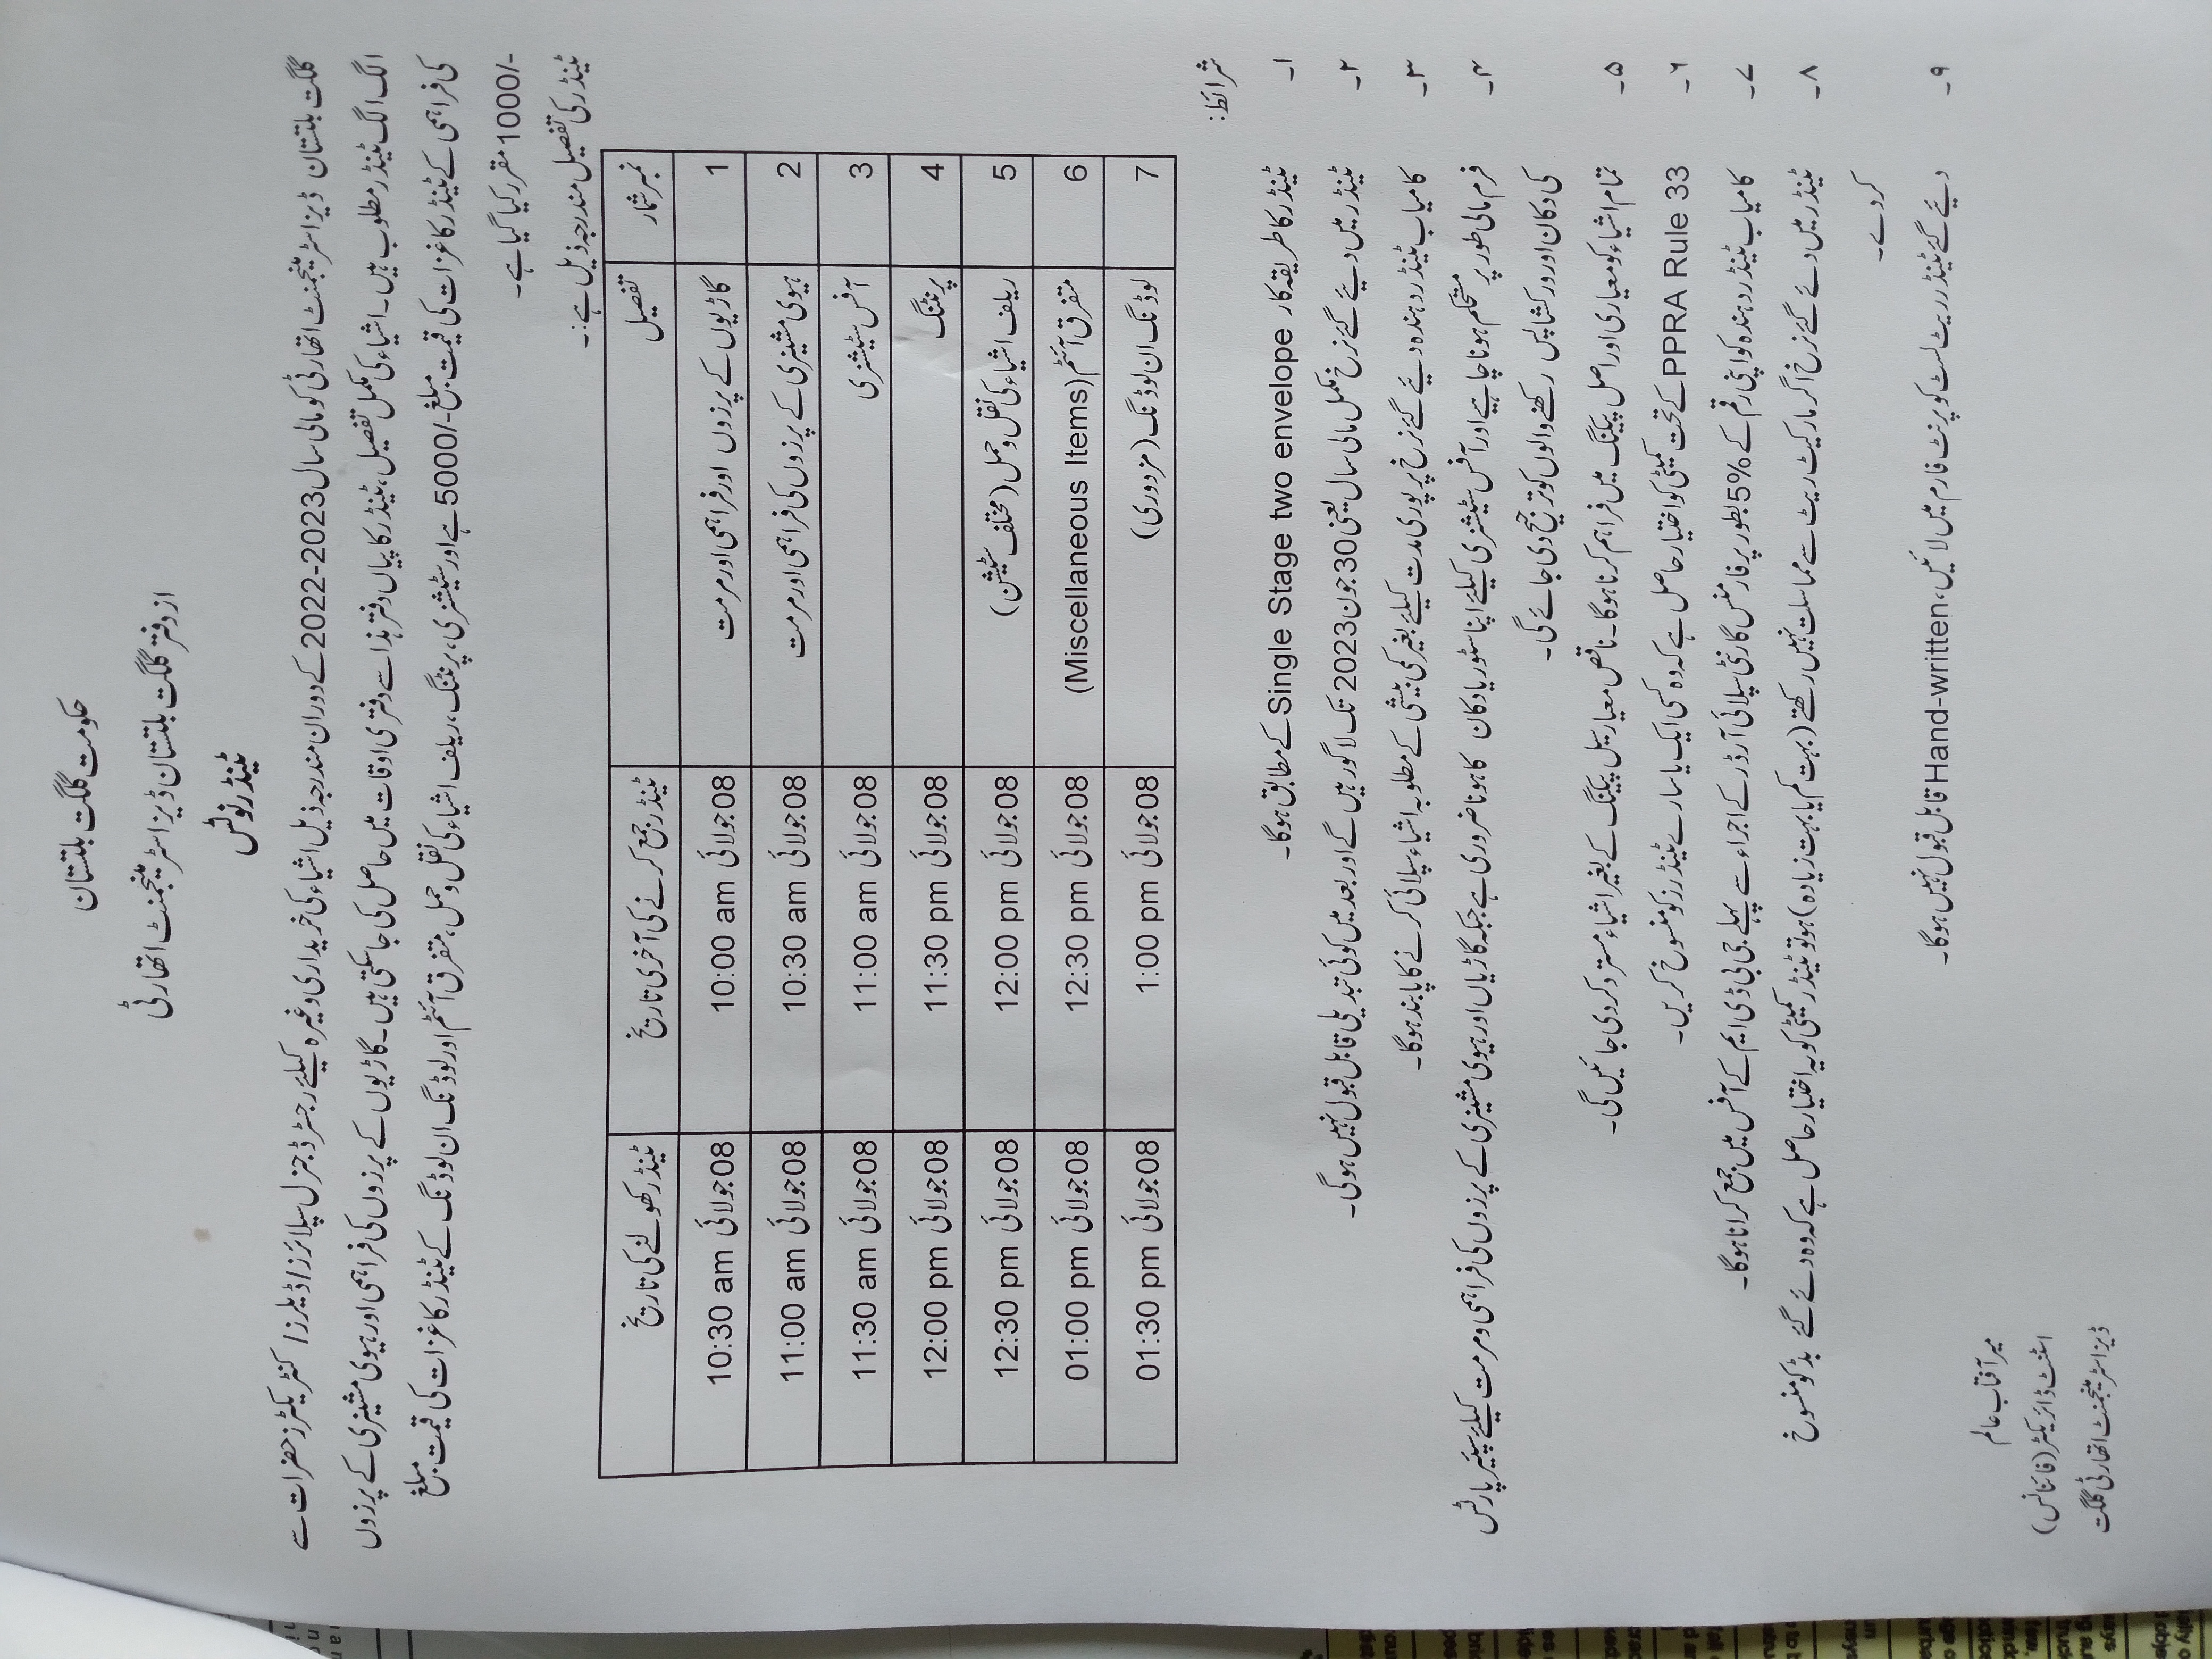 حکومت گلگت بلتستان
از دفتر گلگت بلتستان ڈیزاسٹر مینجمنٹ اتھارٹی
ٹینڈر نوٹس
گلگت بلتستان ڈیزاسٹر مینجمنٹ اتھارٹی کو مالی سال 2023-2022 کے دوران مندرجہ ذیل اشیاء کی خریداری وغیرہ کیلئے رجسٹرڈ جنرل سپلائرز/ڈیلرز/ کنٹریکٹرز حضرات سے
الگ الگ ٹینڈر مطلوب ہیں۔ اشیاء کی مکمل تفصیل، ٹینڈر کاپیاں دفتر ہذا سے دفتری اوقات میں حاصل کی جاسکتی ہیں۔ گاڑیوں کے پرزوں کی فراہمی اور ہیوی مشینری کے پرزوں
کی فراہمی کے ٹینڈر کاغزات کی قیمت مبلغ -/5000 ہے اور سٹیشنری، پرنٹنگ، ریلف اشیاء کی نقل و حمل، متفرق آئٹم اور لوڈنگ ان لوڈنگ کے ٹینڈر کاغزات کی قیمت مبلغ
-/1000 مقرر کیا گیا ہے۔
ٹینڈر کی تفصیل مندرجہ ذیل ہے:۔
نمبر شمار تفصیل ٹینڈر جمع کرنے کی آخری تاریخ ٹینڈر کھولنے کی تاریخ
1 گاڑیوں کے پرزوں اور فراہمی اور مرمت 08 جولائی 10:00 am 08 جولائی 10:30 am
2 ہیوی مشینری کے پرزوں کی فراہمی اور مرمت 08 جولائی 10:30 am 08 جولائی 11:00 am
3 آفس سٹیشنری 08 جولائی 11:00 am 08 جولائی 11:30 am
4 پرنٹنگ 08 جولائی 11:30 pm 08 جولائی 12:00 pm
5 ریلف اشیاء کی نقل و حمل (مختلف سٹیشن) 08 جولائی 12:00 pm 08 جولائی 12:30 pm
6 متفرق آئٹم (Miscellaneous Items) 08 جولائی 12:30 pm 08 جولائی 01:00 pm
7 لوڈنگ ان لوڈنگ (مزدوری) 08 جولائی 1:00 pm 08 جولائی 01:30 pm
شرائط:
۱۔ ٹینڈر کا طریقہ کار Single Stage two envelope کے مطابق ہوگا۔
۲۔ ٹینڈر میں دیئے گئے نرخ مکمل مالی سال یعنی 30 جون 2023 تک لاگو رہیں گے اور بعد میں کوئی تبدیلی قابل قبول نہیں ہوگی۔
۳۔ کامیاب ٹینڈر دہندہ دیئے گئے نرخ پر پوری مدت کیلئے بغیر کمی بیشی کے مطلوبہ اشیاء سپلائی کرنے کا پابند ہوگا۔
۴۔ فرم مالی طور پر مستحکم ہونا چاہیے اور آفس سٹیشنری کیلئے اپنا سٹور یا دکان کا ہونا ضروری ہے جبکہ گاڑیاں اور ہیوی مشینری کے پرزوں کی فراہمی و مرمت کیلئے سپئیر پارٹس
کی دکان اور ورکشاپس رکھنے والوں کو ترجیح دی جائے گی۔
۵۔ تمام اشیاء کو معیاری اور اصل پیکنگ میں فراہم کرنا ہوگا۔ ناقص معیار سیل پیکنگ کے بغیر اشیاء مسترد کر دی جائیں گی۔
۶۔ PPRA Rule 33 کے تحت کمیٹی کو اختیار حاصل ہے کہ وہ کسی ایک یا سارے ٹینڈرز کو منسوخ کریں۔
۷۔ کامیاب ٹینڈر دہندہ کو اپنی رقم کے 5% بطور پرفارمنس گارنٹی سپلائی آرڈر کے اجراء سے پہلے جی بی ڈی ایم کے آفس میں جمع کرانا ہوگا۔
۸۔ ٹینڈر میں دئے گئے نرخ اگر مارکیٹ ریٹ سے مماسلت نہیں رکھتے (بہت کم یا بہت زیادہ) ہو تو ٹینڈر کمیٹی کو یہ اختیار حاصل ہے کہ وہ دئے گئے بڈ کو منسوخ
کر دے۔
۹۔ دیئے گئے ٹینڈر ریٹ لسٹ کو پرنٹ فارم میں لائیں، Hand-written قابل قبول نہیں ہوگا۔
میر آفتاب عالم
اسٹنٹ ڈائریکٹر (فنانس)
ڈیزاسٹر مینجمنٹ اتھارٹی گلگت